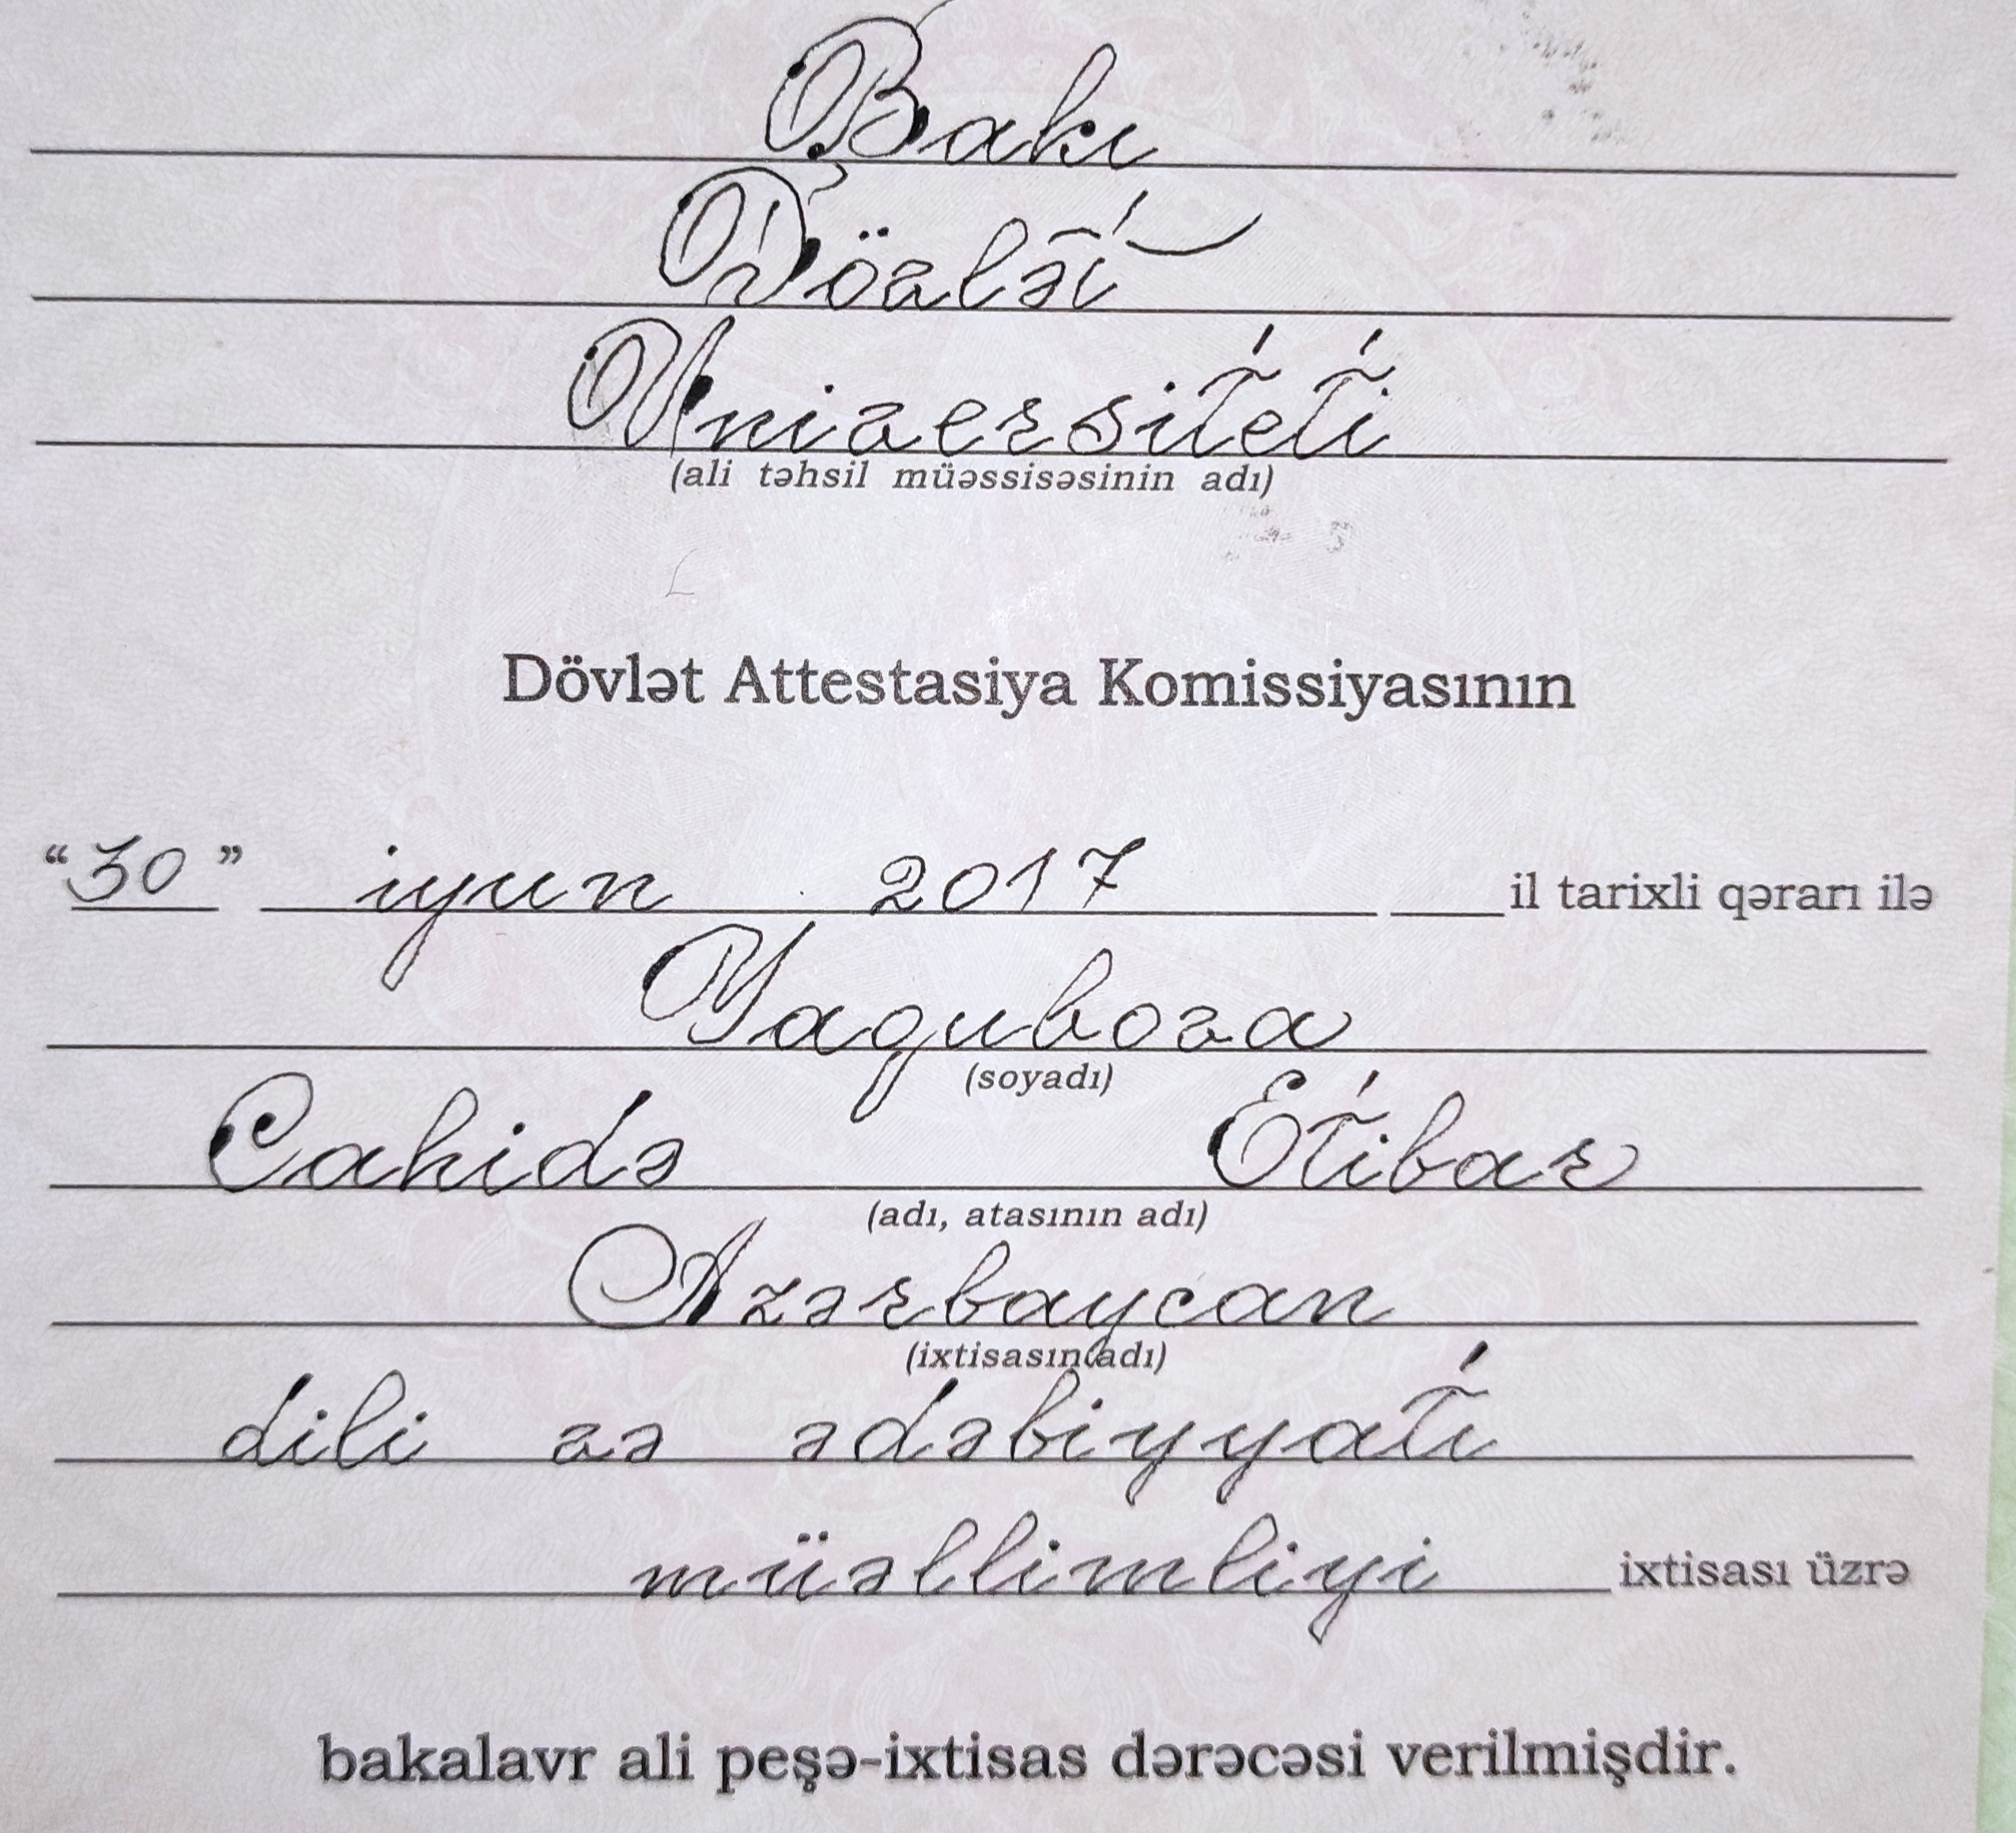 Bakı
Dövlət
Universiteti
(ali təhsil müəssisəsinin adı)
Dövlət Attestasiya Komissiyasının
“30” iyun 2017 il tarixli qərarı ilə
Yaqubova
(soyadı)
Cahidə Etibar
(adı, atasının adı)
Azərbaycan
(ixtisasın adı)
dili və ədəbiyyatı
müəllimliyi ixtisası üzrə
bakalavr ali peşə-ixtisas dərəcəsi verilmişdir.